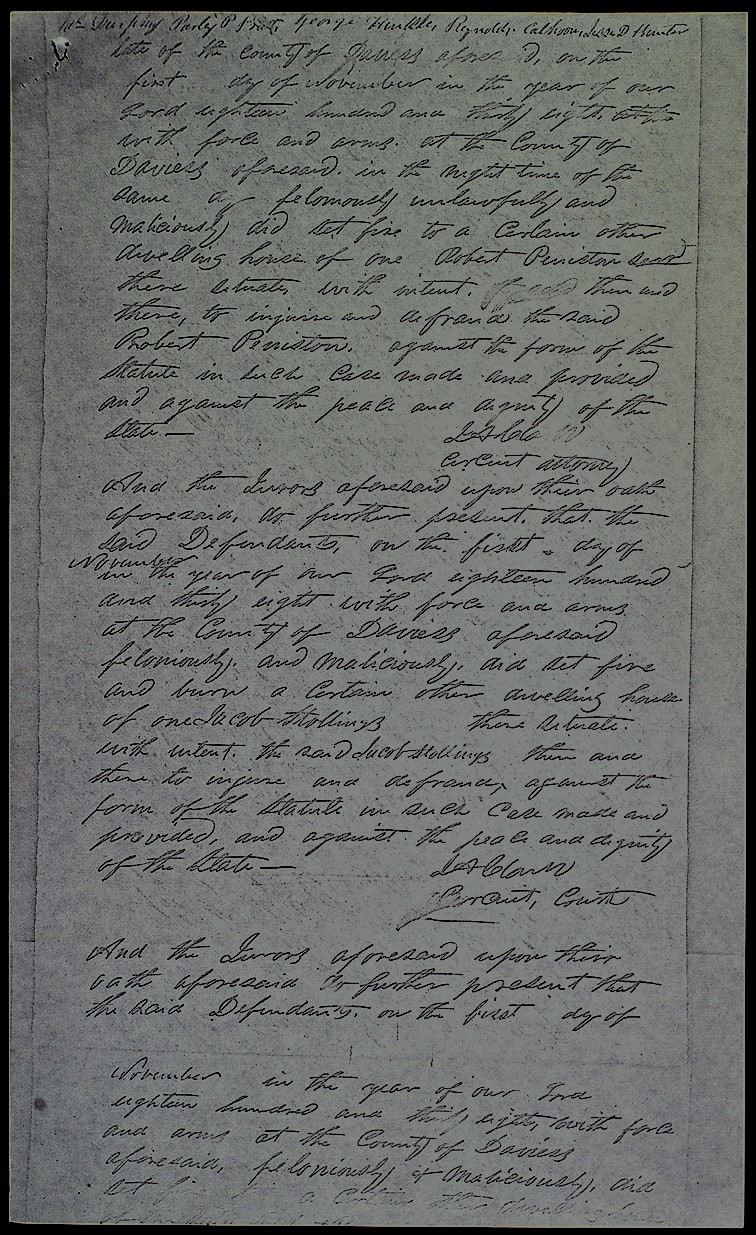 Parley P Pratt, George Hinkle, Reynolds, Calhoon, Jesse D Hunter
late of the county of Daviess aforesaid, on the
first day of November in the year of our
Lord eighteen hundred and thirty eight,
with force and arms. at the County of
Daviess aforesaid. in the night time of the
same day feloniously unlawfully and
Maliciously did set fire to a certain other
dwelling house of one Robert Peniston
there situate, with intent. then and
there, to injure and defraud the said
Robert Peniston. against the form of the
Statute in such Case made and provided
and against the peace and dignity of the
State —
Circuit attorney
And the Jurors aforesaid upon their oath
aforesaid, do further present. that the
said Defendants, on the first day of
November
in the year of our Lord eighteen hundred
and thirty eight with force and arms
at the County of Daviess aforesaid
feloniously, and Maliciously, did set fire
and burn a Certain other dwelling house
of one Jacob Stollings there situate.
with intent. the said Jacob Stollings then and
there to injure and defraud, against the
form of the Statute in such Case made and
provided, and against the peace and dignity
of the State —
Circuit, Court
And the Jurors aforesaid upon their
oath aforesaid do further present that
the said Defendants. on the first dy of
November in the year of our Lord
eighteen hundred and thirty eight, with force
and arms at the County of Daviess
aforesaid, feloniously & Maliciously, did
set a Certain other dwelling house